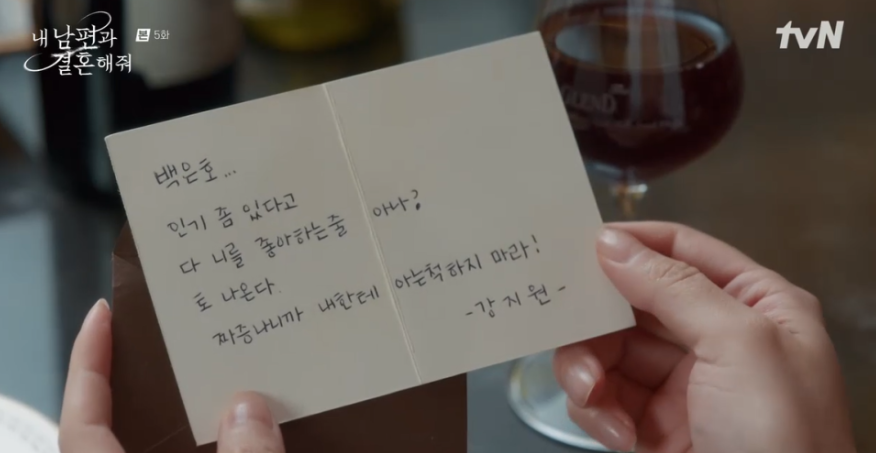 내 남편과
결혼해줘
본 5화
tvN
백은호...
인기 좀 있다고
다 니를 좋아하는줄 아나?
토 나온다.
짜증나니까 내한테 아는척하지 마라!
-강지원-